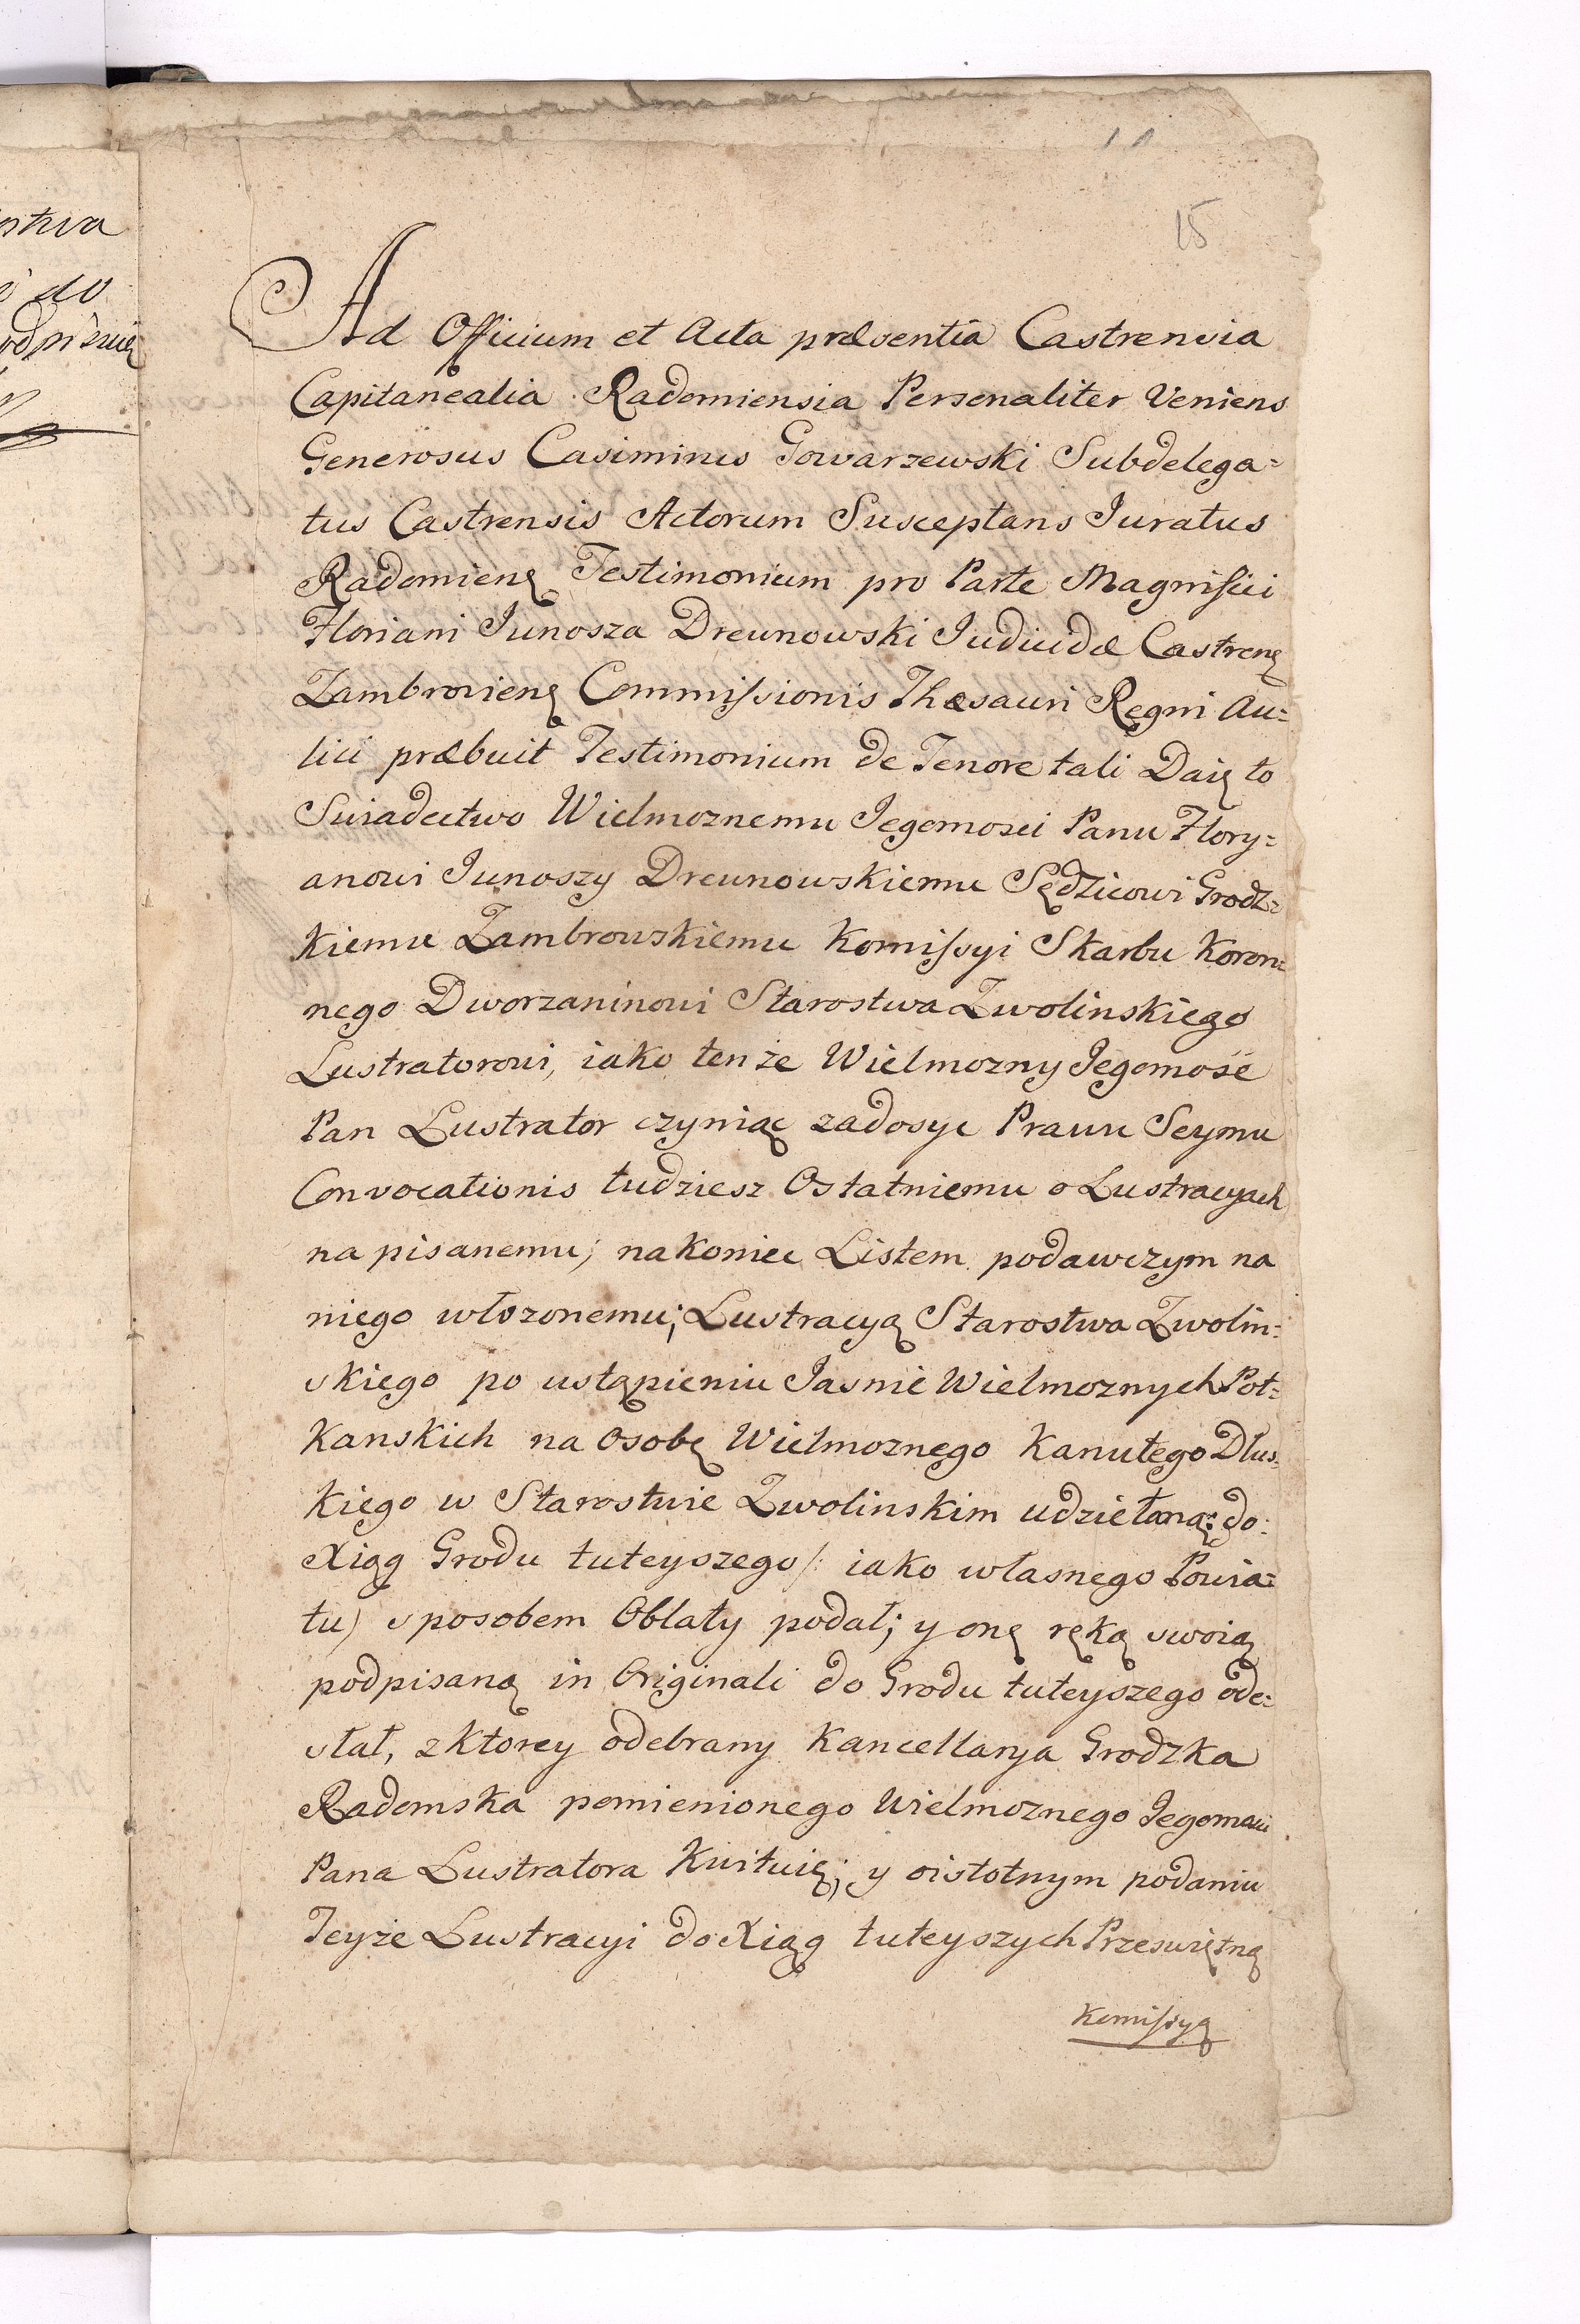 15
Ad Officium et Acta præsentia Castrensia
Capitanealia Radomiensia Personaliter Veniens
Generosus Casimirus Gowarzewski Subdelega=
tus Castrensis Actorum Susceptans Iuratus
Radomienę Testimonium pro Parte Magnifici
Floriani Junosza Drewnowski Judicidæ Castrenę
Zambrovienę Commissionis Thæsauri Regni Au=
lici præbuit Testimonium de Tenore tali Daię to
Swiadectwo Wielmoznemu Jegomosci Panu Flory=
anowi Junoszy Drewnowskiemu Sędzicowi Grodz=
kiemu Zambrowskiemu Komissyi Skarbu Koron=
nego Dworzaninowi Starostwa Zwolinskiego
Lustratorowi, iako tenże Wielmozny Jegomość
Pan Lustrator czyniąc zadosyc Prawu Seymu
Convocationis tudziesz Ostatniemu o Lustracyach
na pisanemu; nakoniec Listem podawczym na
niego włozonemu; Lustracyą Starostwa Zwolin=
skiego po ustąpieniu Jasnie Wielmoznych Pot=
kanskich na Osobę Wielmoznego Kanutego Dłus=
kiego w Starostwie Zwolinskim udziełaną: do=
Xiąg Grodu tuteyszego /: iako własnego Powia=
tu) sposobem Oblaty podał; y onę ręką swoią
podpisaną in Originali do Grodu tuteyszego ode=
słał, z ktorey odebrany Kancellarya Grodzka
Radomska pomienionego Wielmoznego Jegomosci
Pana Lustratora Kwituię; y oistotnym podaniu
Teyże Lustracyi do Xiąg tuteyszych Przeswiętną
Komissyą